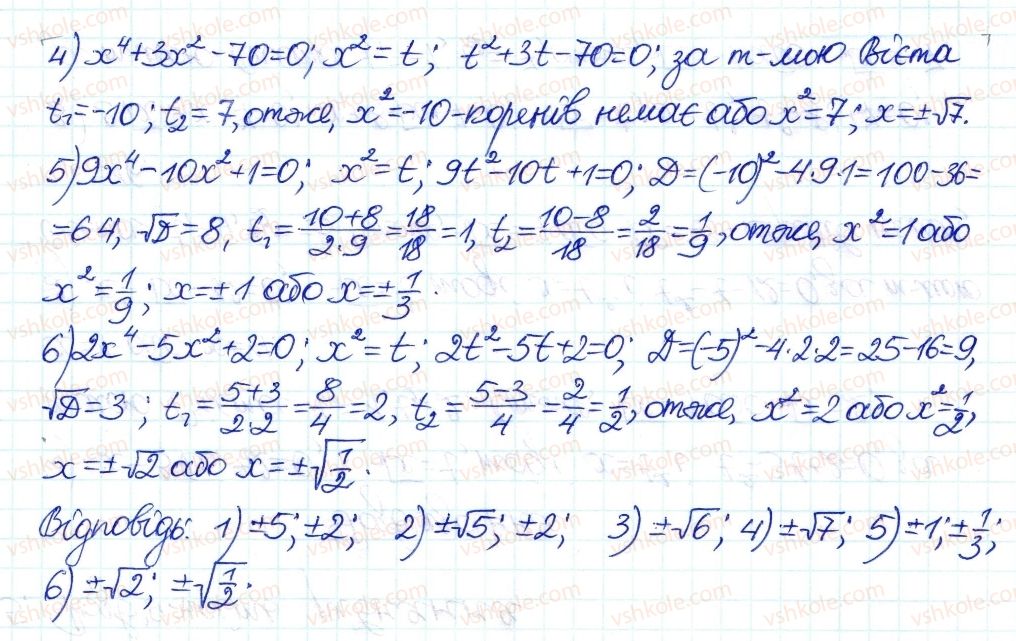 4) x⁴+3x²-70=0; x²=t; t²+3t-70=0; за т-мою Вієта
t₁=-10; t₂=7, отже, x²=-10-коренів немає або x²=7; x=±√7.
5) 9x⁴-10x²+1=0; x²=t; 9t²-10t+1=0; D=(-10)²-4·9·1=100-36=
=64, √D=8, t₁=(10+8)/(2·9)=18/18=1, t₂=(10-8)/18=2/18=1/9, отже, x²=1 або
x²=1/9; x=±1 або x=±1/3.
6) 2x⁴-5x²+2=0; x²=t; 2t²-5t+2=0; D=(-5)²-4·2·2=25-16=9,
√D=3; t₁=(5+3)/(2·2)=8/4=2, t₂=(5-3)/4=2/4=1/2, отже, x²=2 або x²=1/2,
x=±√2 або x=±√(1/2).
Відповідь: 1) ±5; ±2; 2) ±√5; ±2; 3) ±√6; 4) ±√7; 5) ±1; ±1/3;
6) ±√2; ±√(1/2).
vshkole.com